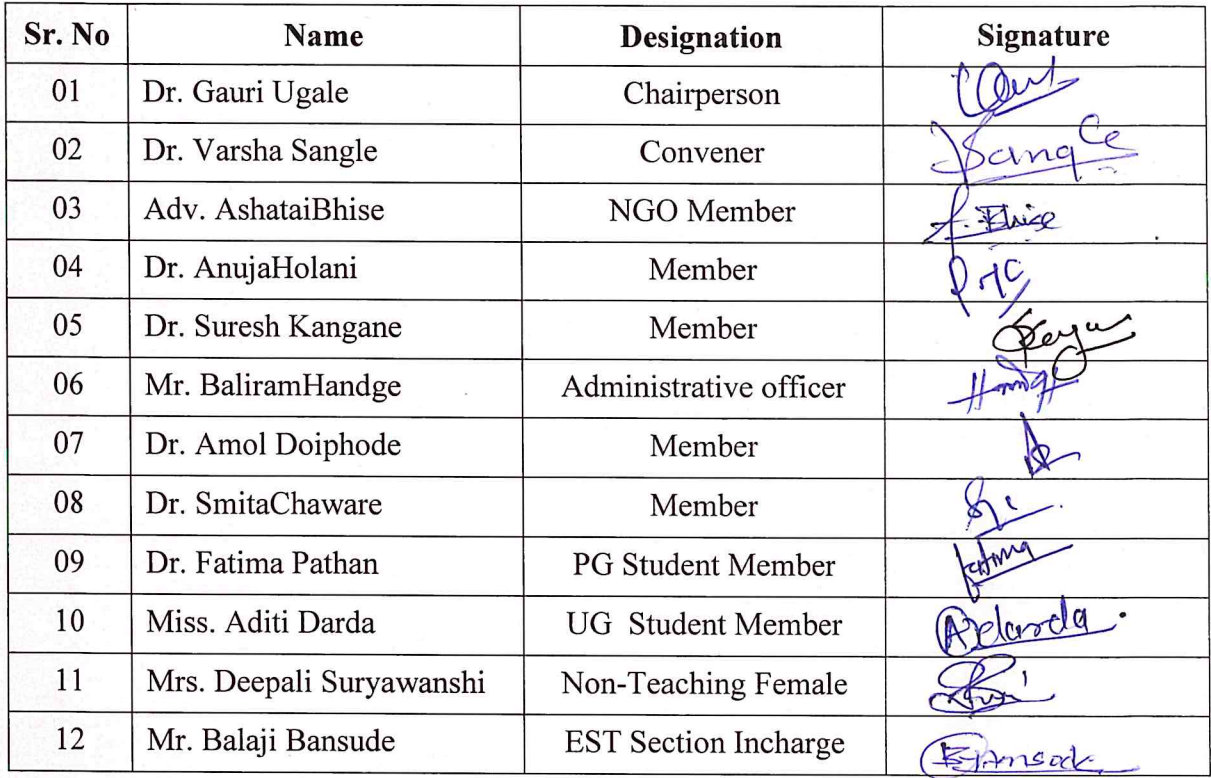 Sr. No Name Designation Signature
01 Dr. Gauri Ugale Chairperson
02 Dr. Varsha Sangle Convener Sangle
03 Adv. AshataiBhise NGO Member A. Bhise
04 Dr. AnujaHolani Member
05 Dr. Suresh Kangane Member
06 Mr. BaliramHandge Administrative officer
07 Dr. Amol Doiphode Member
08 Dr. SmitaChaware Member
09 Dr. Fatima Pathan PG Student Member Fatima
10 Miss. Aditi Darda UG Student Member Adarda
11 Mrs. Deepali Suryawanshi Non-Teaching Female
12 Mr. Balaji Bansude EST Section Incharge